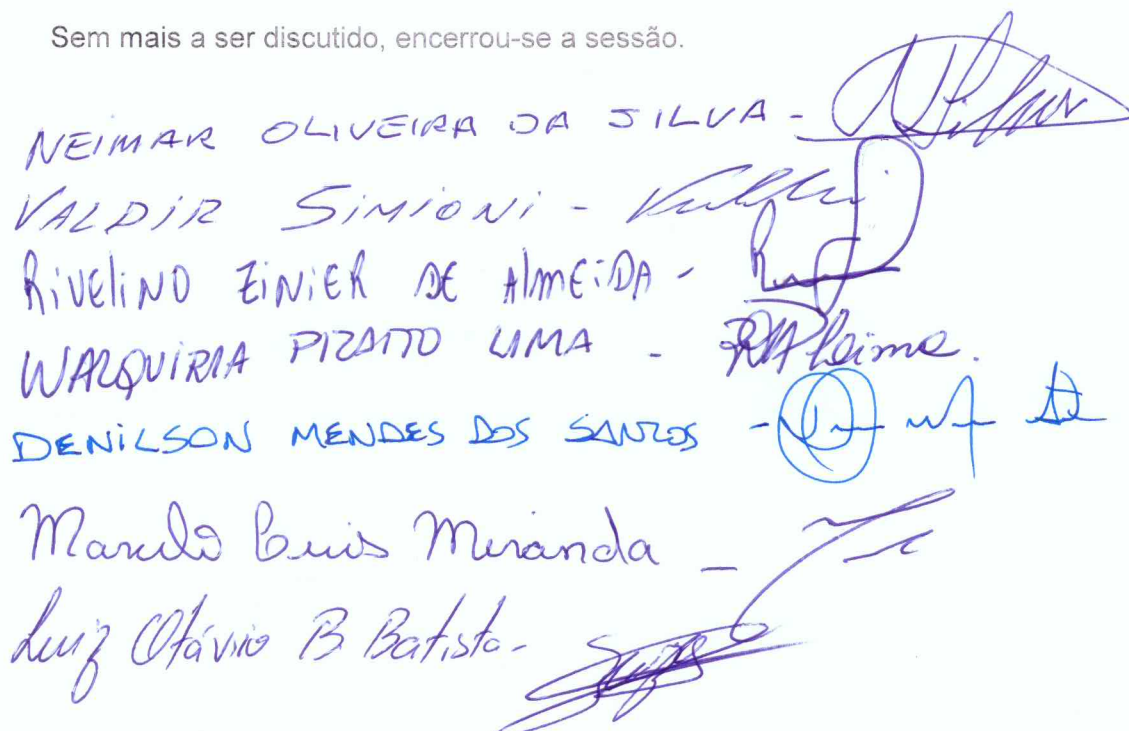 Sem mais a ser discutido, encerrou-se a sessão.
NEIMAR OLIVEIRA DA SILVA -
VALDIR SIMIONI -
RIVELINO ZINIER DE ALMEIDA -
WALQUIRIA PIZATTO LIMA -
DENILSON MENDES DOS SANTOS -
Marcelo Luis Miranda -
Luiz Otávio B Batista -